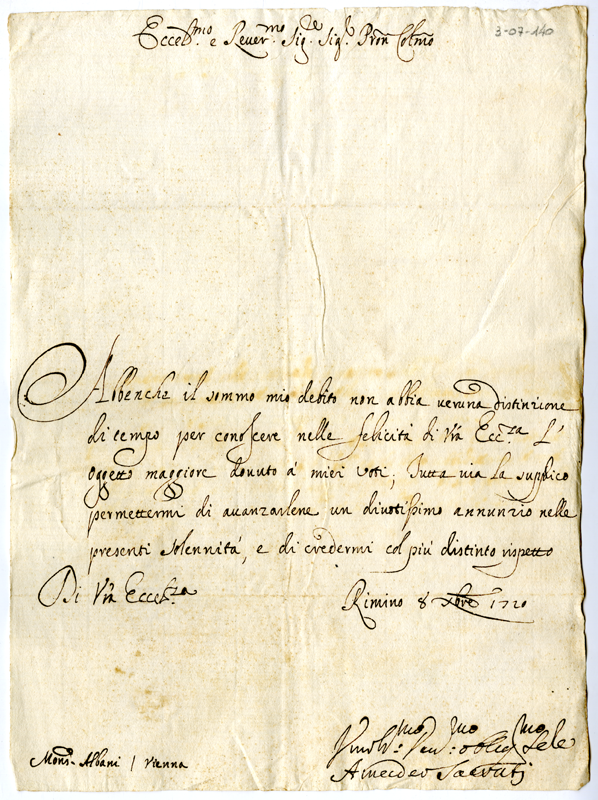 3-07-140
Eccell.mo e Rever.mo Sig.re Sig.r Pron Colmo
Abbenche il sommo mio debito non abbia veruna distinzione
di tempo per conoscere nelle felicità di Vra Ecc.za L'
oggetto maggiore dovuto à miei voti; Tutta via La supplico
permettermi di avanzarlene un divotissimo annunzio nelle
presenti Solennità, e di credermi col più distinto rispetto
Di Vra Eccell.za
Rimino 8 Xbre 1720
Amedeo
Mons.r Albani / Vienna